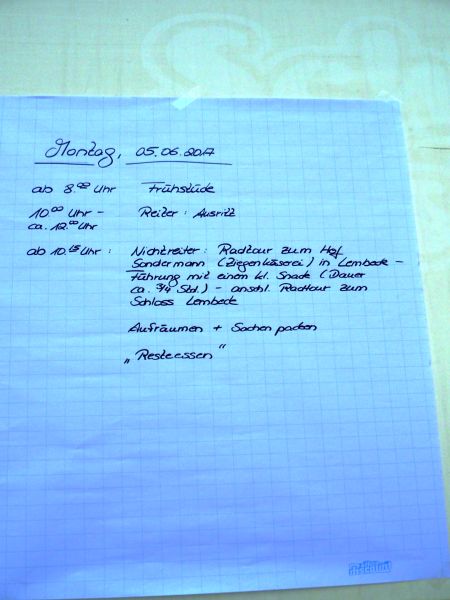 Montag, 05.06.2017
ab 8.00 Uhr Frühstück
10.00 Uhr - Reiter: Ausritt
ca. 12.00 Uhr
ab 10.15 Uhr: Nichtreiter: Radtour zum Hof
Sondermann (Ziegenkäserei) in Lembeck -
Führung mit einem kl. Snack (Dauer
ca. 3/4 Std.) - anschl. Radtour zum
Schloss Lembeck
Aufräumen + Sachen packen
„Resteessen“